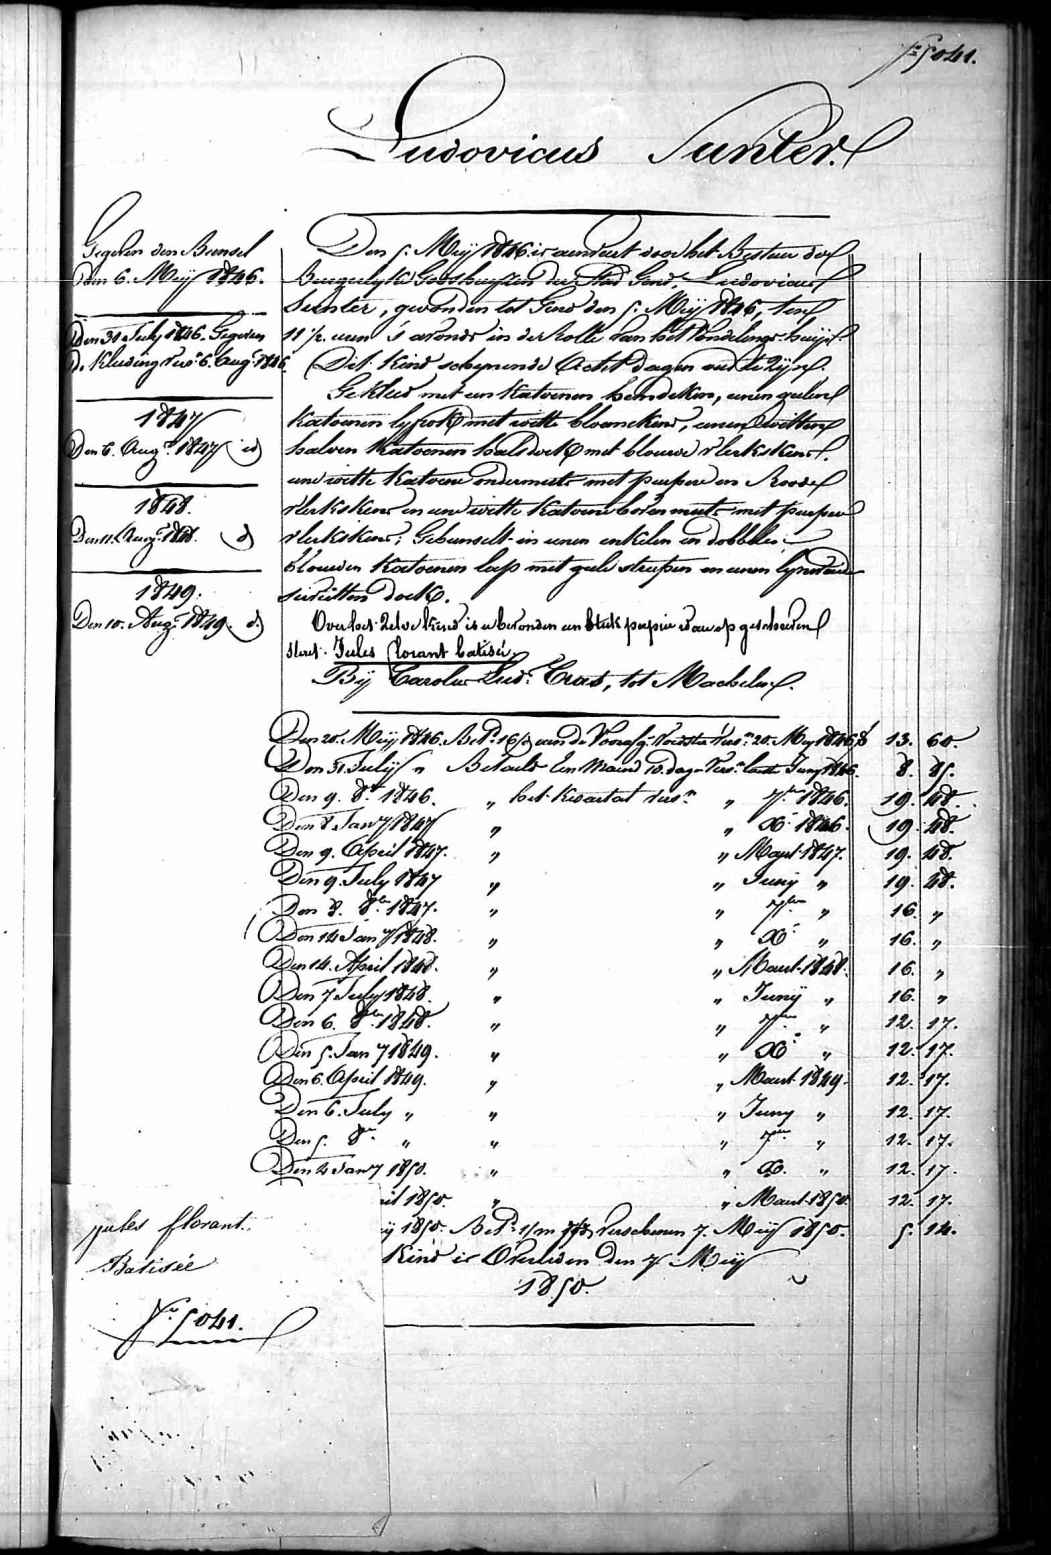 Nº 5041.
Ludovicus Sunter.
Gegeven den Bunsel
den 6. Meij 1846.
Den 31 July 1846. Gegeven
de Kleeding vers. 6. Aug. 1846.
1847
Den 6. Augt. 1847 id
1848.
Den 11. Augt. 1848. id
1849.
Den 10. Augt. 1849. id
Den 5. Meij 1846 is aenveert door het Bestuer der
Burgerlyke Godshuyzen der Stad Gend, Ludovicus
Sunter, gevonden tot Gend den 5. Meij 1846, ten
11 ½ uren 's avonds in de Rolle van het Vondelings-huys.
(Dit Kind schynende Acht dagen oud te zyn.
Gekleed met een Katoenen hemdeken, eenen geelen
Katoenen lyfrok met witte bloemekens, eenen witten
halven Katoenen halsdoek met blauwe vlekskens.
eene witte Katoene ondermuts met purpere en Roode
vlekskens en eene witte Katoene bovenmuts met purpere
vlekskens; Gebunselt in eenen enkelen en dobbelen
blauwen Katoenen lap met gele streepen en eenen lynwaeden
servietten doek.
Over het zelve kind is er bevonden een stuk papier daer op geschreven
staet. Jules florant batisé.
Bij Carolus Lud. Cras, tot Machelen.
Den 20. Meij 1846. Bet. 16/d aen de Voorsg. Voedster vers. 20. Mey 1846 f 13. 60.
Den 31 Julij " Betaeld Een Maend 10. dagen vers. laeste Juny 1846. 8. 85.
Den 9. 8br 1846. " het Kwartael vers. " 7br 1846. 19. 48.
Den 8 Jany 1847 " " Xr 1846. 19. 48.
Den 9. April 1847. " " Maert 1847. 19. 48.
Den 9. July 1847 " " Juny " 19. 48.
Den 8. 8br 1847. " " 7br " 16. "
Den 14 Jany 1848. " " Xr " 16. "
Den 14. April 1848. " " Maert 1848. 16. "
Den 7 July 1848. " " Junij " 16. "
Den 6. 8br 1848. " " 7br " 12. 17.
Den 5. Jany 1849. " " Xr " 12. 17.
Den 6. April 1849. " " Maert 1849. 12. 17.
Den 6. July " " " Juny " 12. 17.
Den 5. 8br " " " 7br " 12. 17.
Den 4 Jany 1850. " " X. " 12. 17.
il 1850. " " Maert 1850 12. 17.
ij 1850. Bet. 1/m verschenen 7. Meij 1850. 5. 14.
Kind is Overleden den 7 Meij
1850.
jules florant
Batisée
Nº 5041.